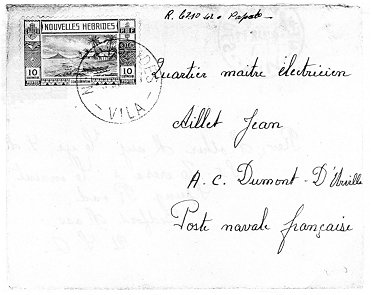 R. 6210 42 à Papeete
NOUVELLES HEBRIDES
RF
10 10
VILA
Quartier maitre électricien
Aillet Jean
A. C. Dumont-D'Urville
Poste navale française